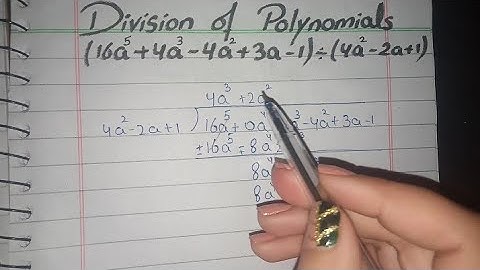 Division of Polynomials
(16a⁵+4a³-4a²+3a-1)÷(4a²-2a+1)
4a³+2a²
4a²-2a+1) 16a⁵+0a⁴ ³-4a²+3a-1
±16a⁵∓8a⁴
8a⁴
8a⁴